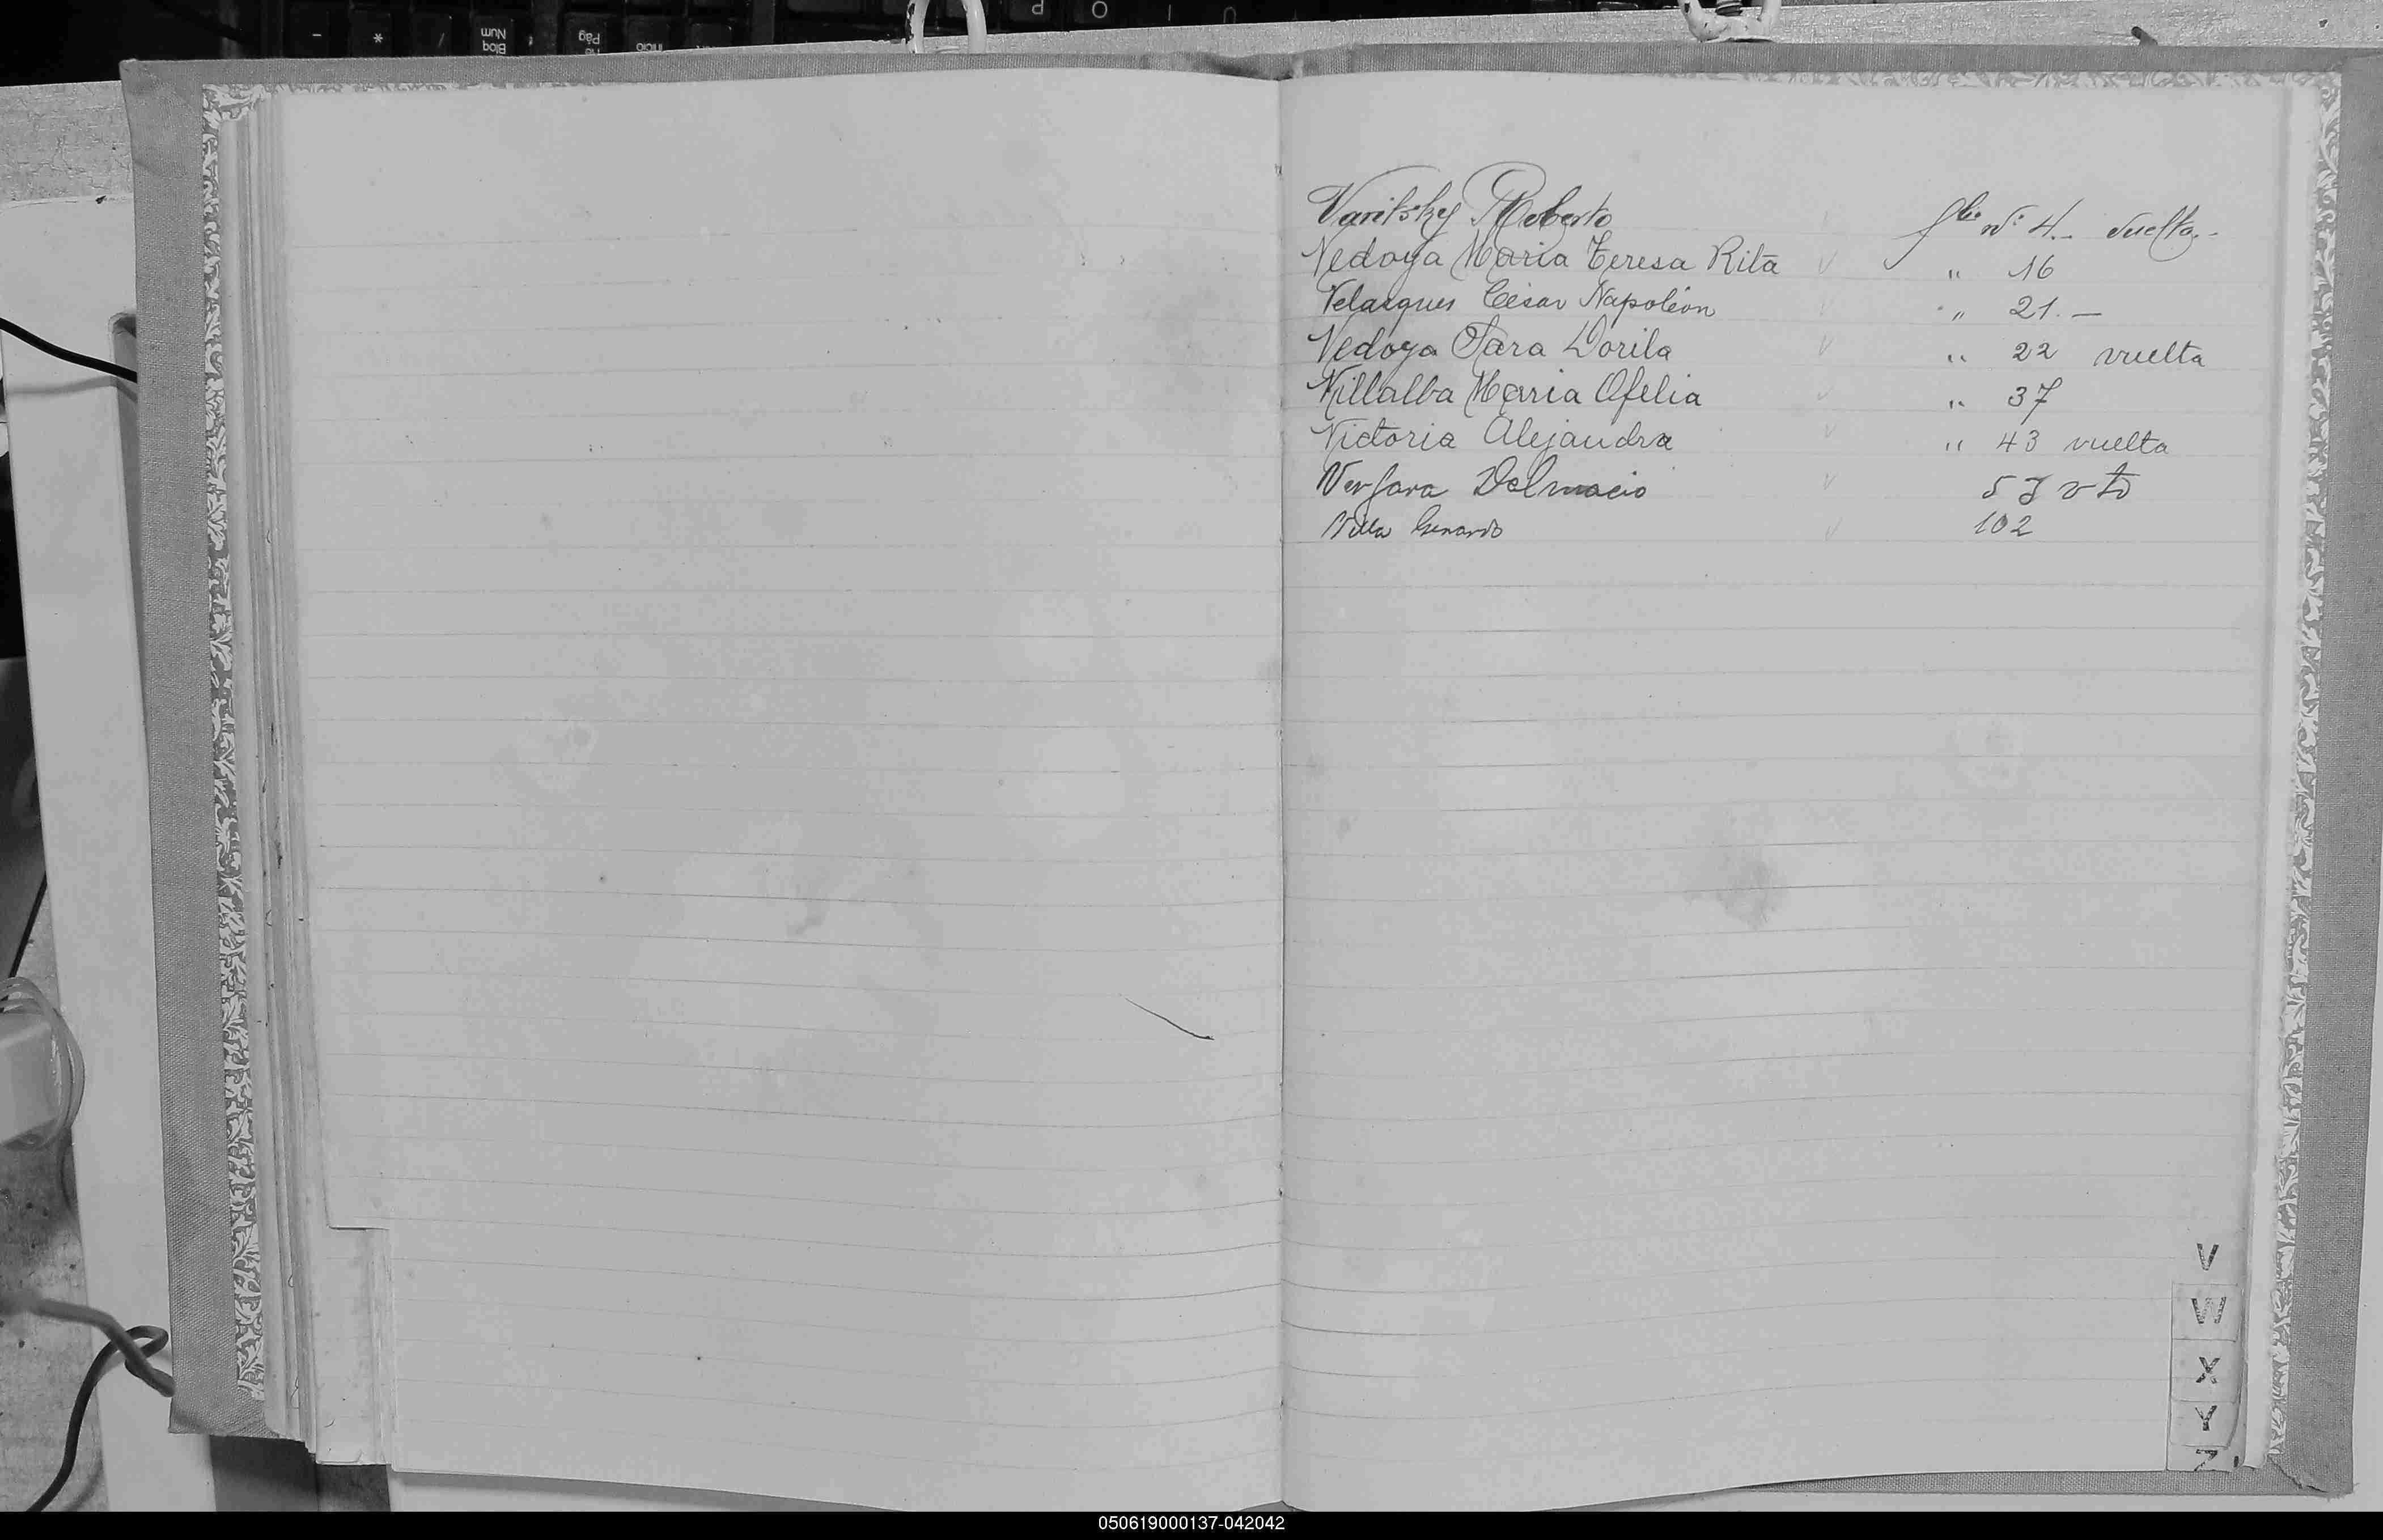 Varitsky Roberto flio Nº 4.- vuelta.-
Vedoya Maria Teresa Rita " 16
Velazques César Napoléon " 21. —
Vedoya Sara Dorila " 22 vuelta
Villalba Maria Ofelia " 37
Victoria Alejandra " 43 vuelta
Vergara Delmacio 57 vto
Villa 102
V
W
X
Y
Z
050619000137-042042